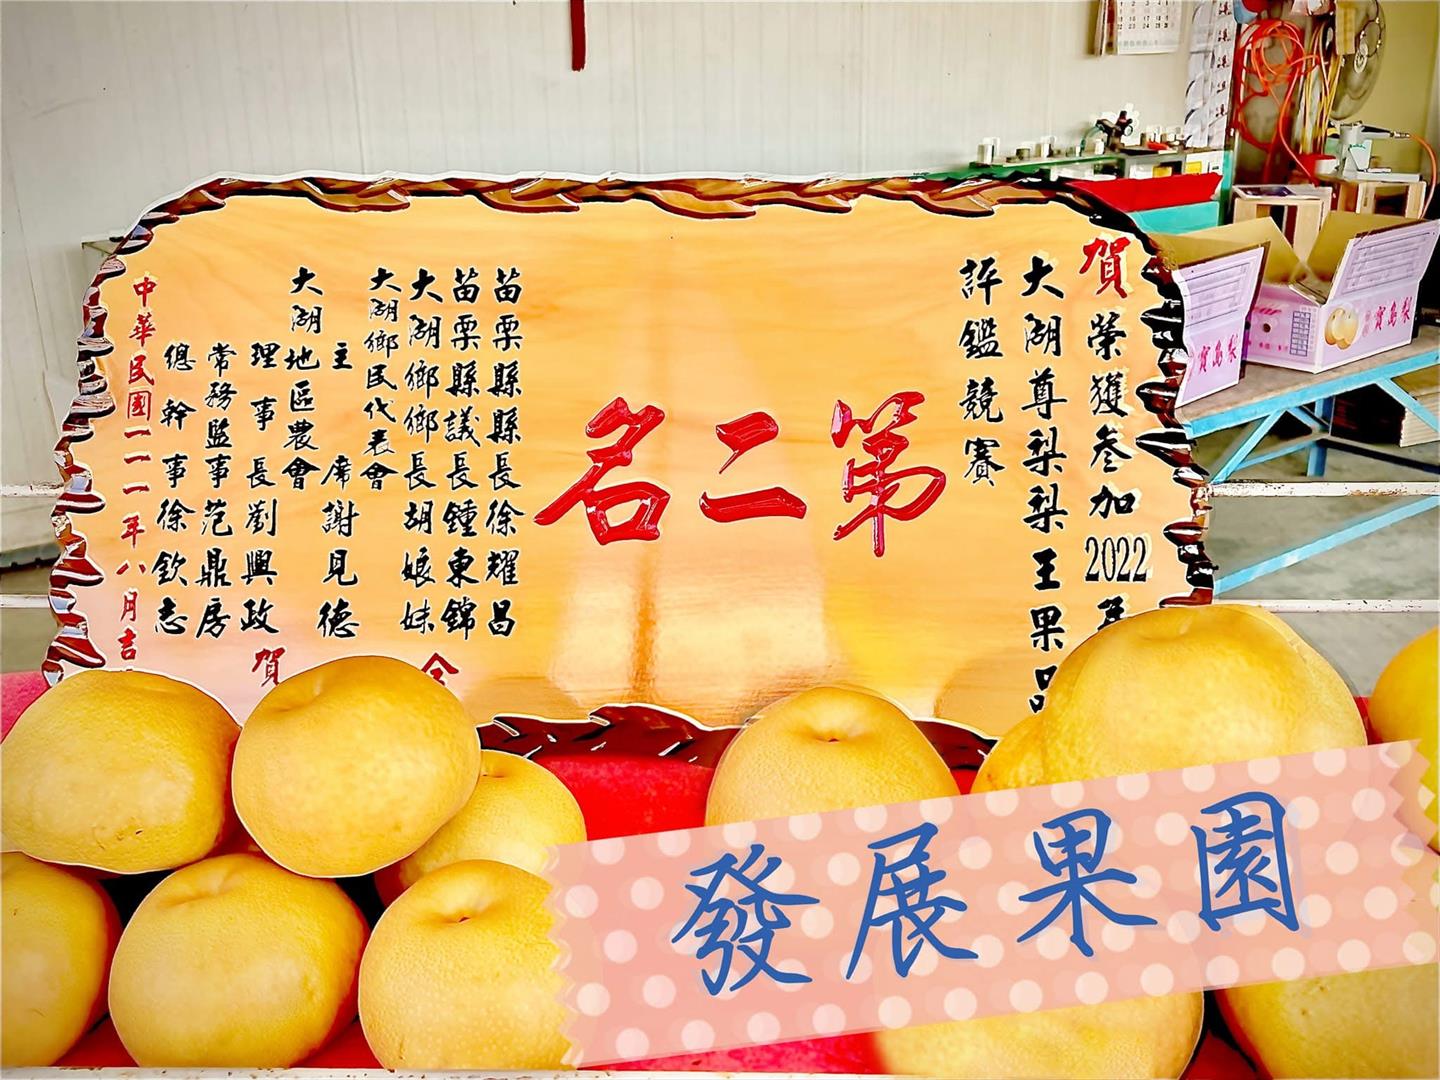 賀榮獲參加2022年
大湖尊梨梨王果品
評鑑競賽
第二名
苗栗縣縣長徐耀昌
苗栗縣議長鍾東錦
大湖鄉鄉長胡娘妹
大湖鄉民代表會
主席謝見德
大湖地區農會
理事長劉興政
常務監事范鼎房
總幹事徐欽志
仝
賀
中華民國一一一年八月吉
寶島梨
寶島梨
發展果園